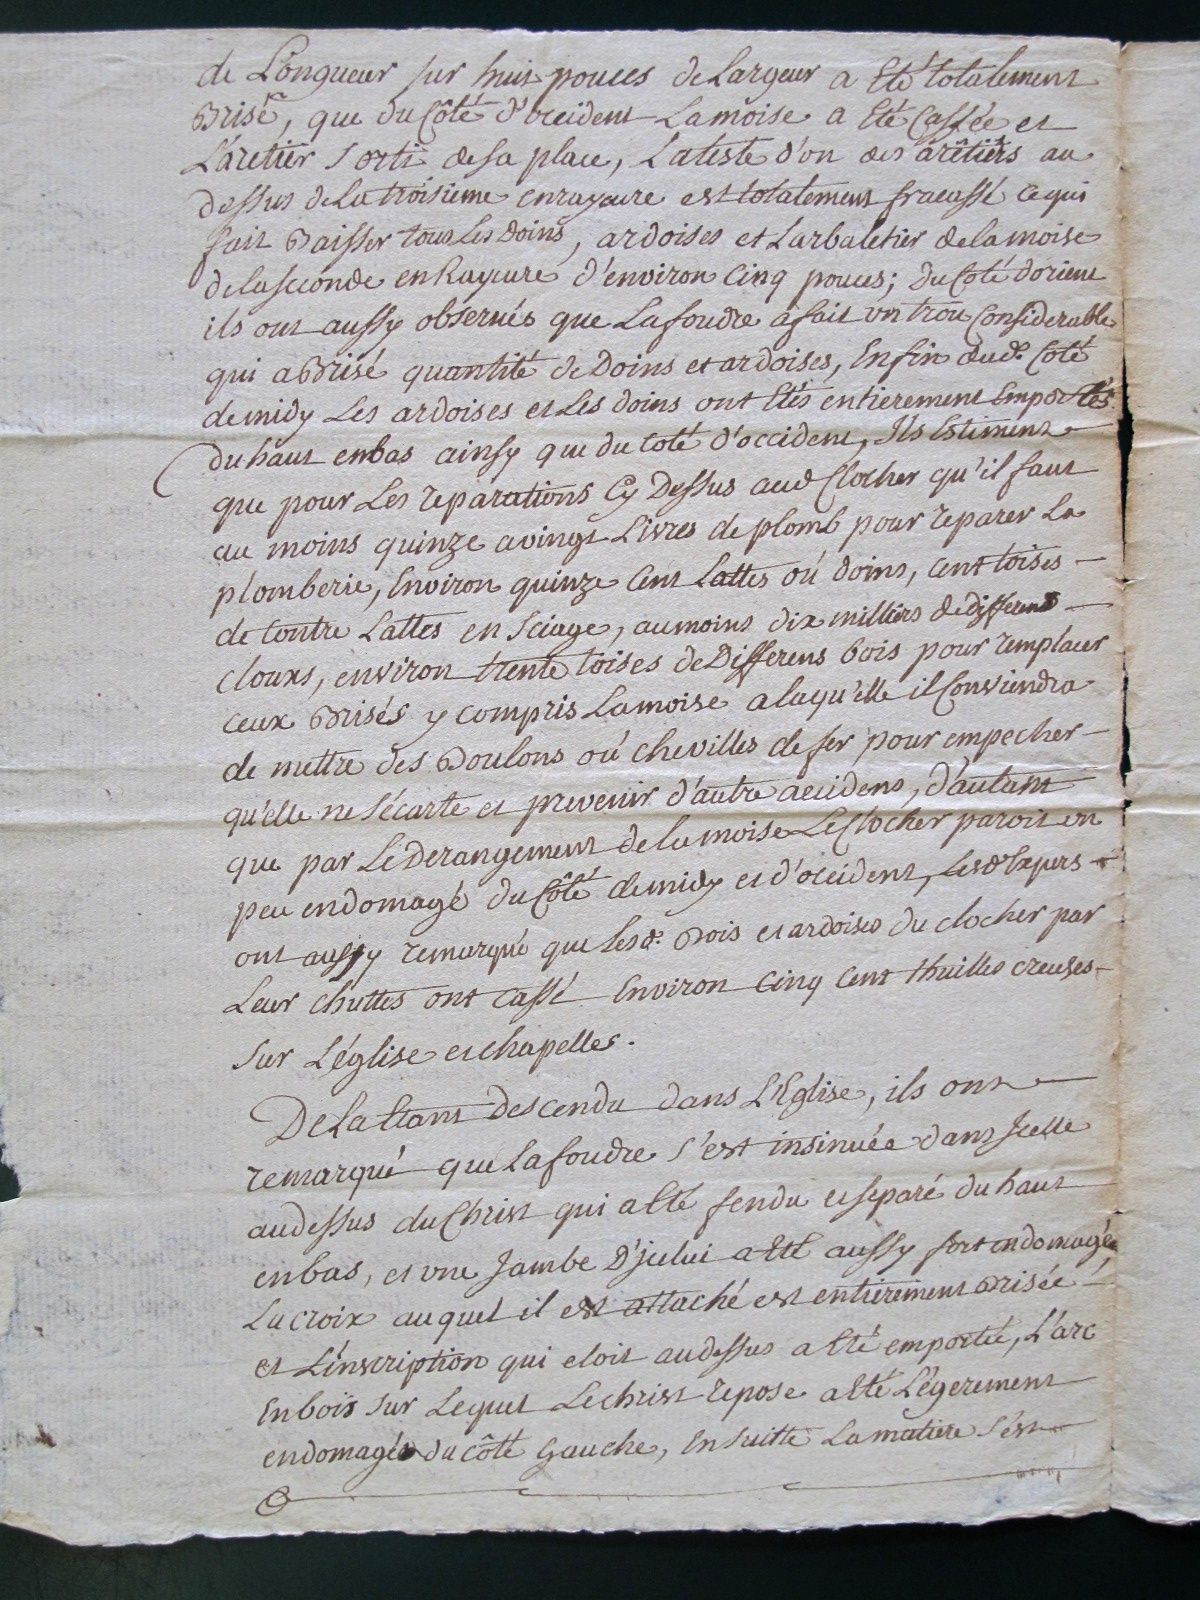 de Longueur sur huit pouces de Largeur a Eté totalement
Brisé, que du Côté d'occident La moise a Eté Cassée et
L'arêtier sorti de sa place, La teste d'un des arêtiers au
dessus de la troisieme enrayeure est totalement fracassé ce qui
fait Baisser tous Les Doins, ardoises et L'arbaletier de la moise
de la seconde enRayeure d'environ Cinq pouces; du Coté d'orient
ils ont aussy observés que La foudre a fait un trou Considerable
qui a Brisé quantité de Doins et ardoises, Enfin dud. Coté
de midy Les ardoises et Les doins ont Etés entierement Emportés
du haut enbas ainsy que du Coté d'occident, Ils Estiment
que pour Les reparations Cy Dessus aud Clocher qu'il faut
au moins quinze a vingt Livres de plomb pour reparer La
plomberie, Environ quinze Cent Lattes ou doins, cent toises
de Contre Lattes en Sciage, au moins dix milliers de differens
Cloux, environ trente toises de Differens bois pour remplacer
ceux Brisés y compris La moise a laqu'elle il Conviendra
de mettre des Boulons ou chevilles de fer pour empecher
qu'elle ne s'écarte et prevenir d'autre accidens, d'autant
que par Le Derangement de la moise Le Clocher paroit un
peu endomagé du Côté de midy et d'occident, Lesd. Expers
ont aussy remarqué que lesd. Bois et ardoises du clocher par
Leur chuttes ont cassé Environ Cinq Cent thuilles creuses
sur L'église et chapelles.
De La Etant descendu dans L'Eglise, ils ont
remarqué que La foudre s'est insinuée dans Icelle
au dessus du Christ qui a Eté fendu et separé du haut
en bas, et une Jambe D'jcelui a Eté aussy fort endomagée
La croix auquel il est attaché est entièrement Brisée
et L'inscription qui etoit au dessus a Eté emportée, L'arc
En bois sur Lequel Le christ repose a Eté Légerement
endomagé du côté Gauche, En suitte La matiere s'est